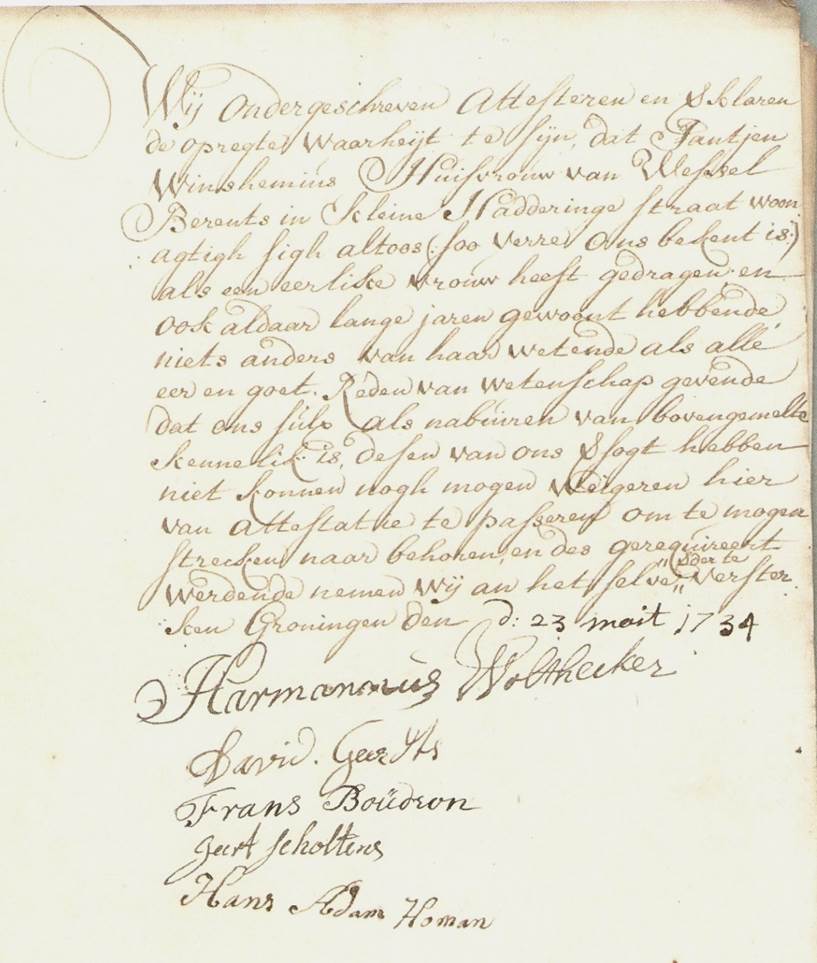 Wij Ondergeschreven Attesteren en Sklaren
de opregte Waarheijt te sijn, dat Jantjen
Winshemius Huisvrouw van Wessel
Berents in Kleine Hadderinge straat woon
agtigh sigh altoos (: soo verre Ons bekent is:)
als een eerlike vrouw heeft gedragen, en
ook aldaar lange jaren gewoont hebbende
niets anders van haar wetende als alle
eer en goet. Reden van wetenschap gevende
dat ons sulx als nabuiren van bovengemelte
kennelik is, desen van ons Ssogt hebben
niet konnen nogh mogen Weigeren hier
van Attestatie te passeren om te mogen
strecken naar behoren, en des gerequireert
Werdende nemen Wij an het selve " Verster
" Eder te
ken Groningen den d: 23 mait 1734
Harmannus Wolthecker
David. Geerts
Frans Boüdron
geert scholtens
Hans Adam Homan